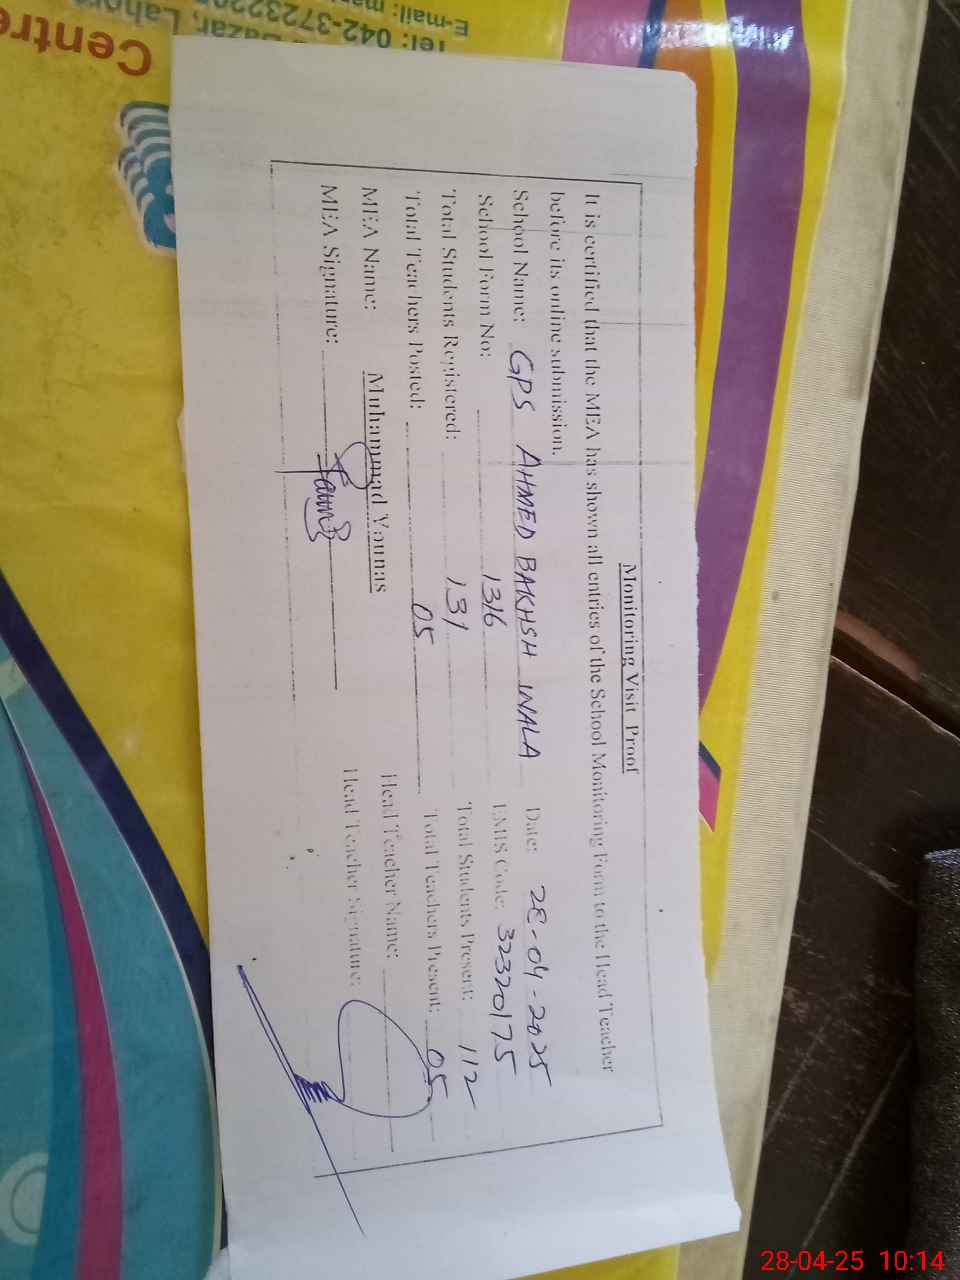 Monitoring Visit Proof
It is certified that the MEA has shown all entries of the School Monitoring Form to the Head Teacher
before its online submission.
School Name: GPS AHMED BAKHSH WALA Date: 28-04-2025
School Form No: 1316 EMIS Code: 32320175
Total Students Registered: 131 Total Students Present: 112
Total Teachers Posted: 05 Total Teachers Present: 05
MEA Name: Muhammad Younas Head Teacher Name:
MEA Signature: Head Teacher Signature:
Centre
Bazar, Lahore
Tel: 042-3723220
E-mail:
28-04-25 10:14